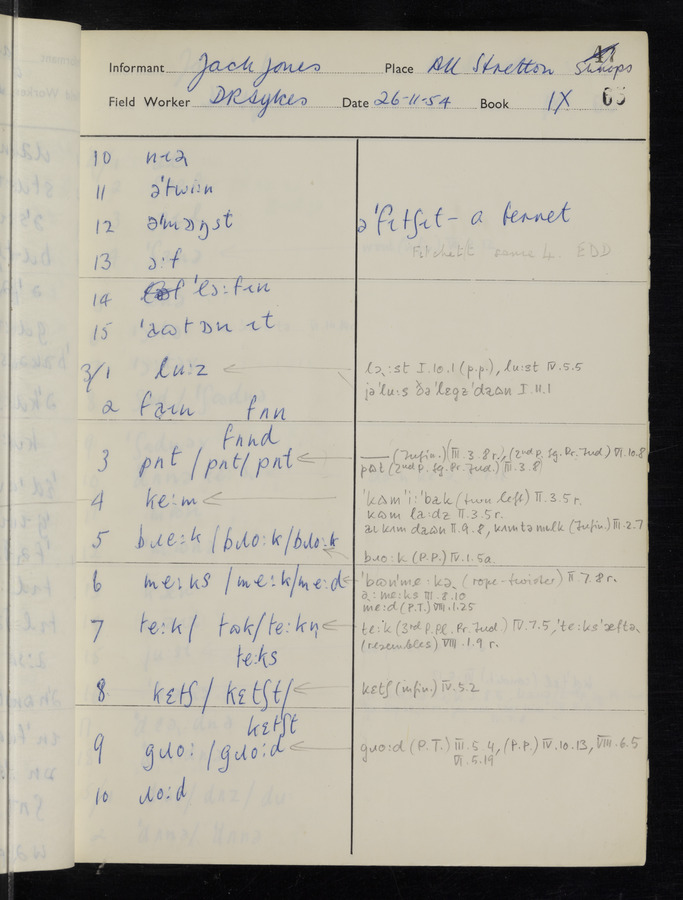 Informant Jack Jones Place All Stretton Shrops
Field Worker D R Sykes Date 26-11-54 Book IX 65
10 nɪə
11 ə'twi:n
12 ə'mɒŋst ə'fɪtʃɪt – a ferret
Fitchett sense 4 EDD
13 ə:f
14 'ɛə:fɪn
15 'aʊtɒn ɪt
3/1 lu:z
lɔ:st I.10.1 (p.p.), lu:st IV.5.5
jə'lu:s ðə'lɛgz'daʊn I.11.1
2 faɪn fʌn
fʌnd
3 pʌt / pʌt / pʌt —— (Infin.) III.3.8r., (2nd P. Sg. Pr. Ind.) VI.10.8
pʊt (2nd P. Sg. Pr. Ind.) III.3.8
4 ke:m 'kʊm'i:'bak (turn left) II.3.5r.
kʊm la:dz II.3.5r.
aɪ kʊm daʊn II.9.8, kʊm tə mɪlk (Infin.) III.2.7
5 bɹe:k / bɹo:k / bɹo:k
bɹo:k (P.P.) IV.1.5a
6 me:ks / me:k / me:d 'bɒn'me:kə (rope-twister) II.7.8r.
ə:me:ks III.8.10
me:d (P.T.) VIII.1.25
7 te:k / tʊk / te:kn te:k (3rd P. Pl. Pr. Ind.) IV.7.5, 'te:ks'æftə
te:ks (resembles) VIII.1.9r.
8 kɛtʃ / kɛtʃt / kɛtʃ (infin.) IV.5.2
kɛtʃt
9 gɹo: / gɹo:d gɹo:d (P.T.) III.5.4, (P.P.) IV.10.13, VIII.6.5
VI.5.19
10 ɹo:d